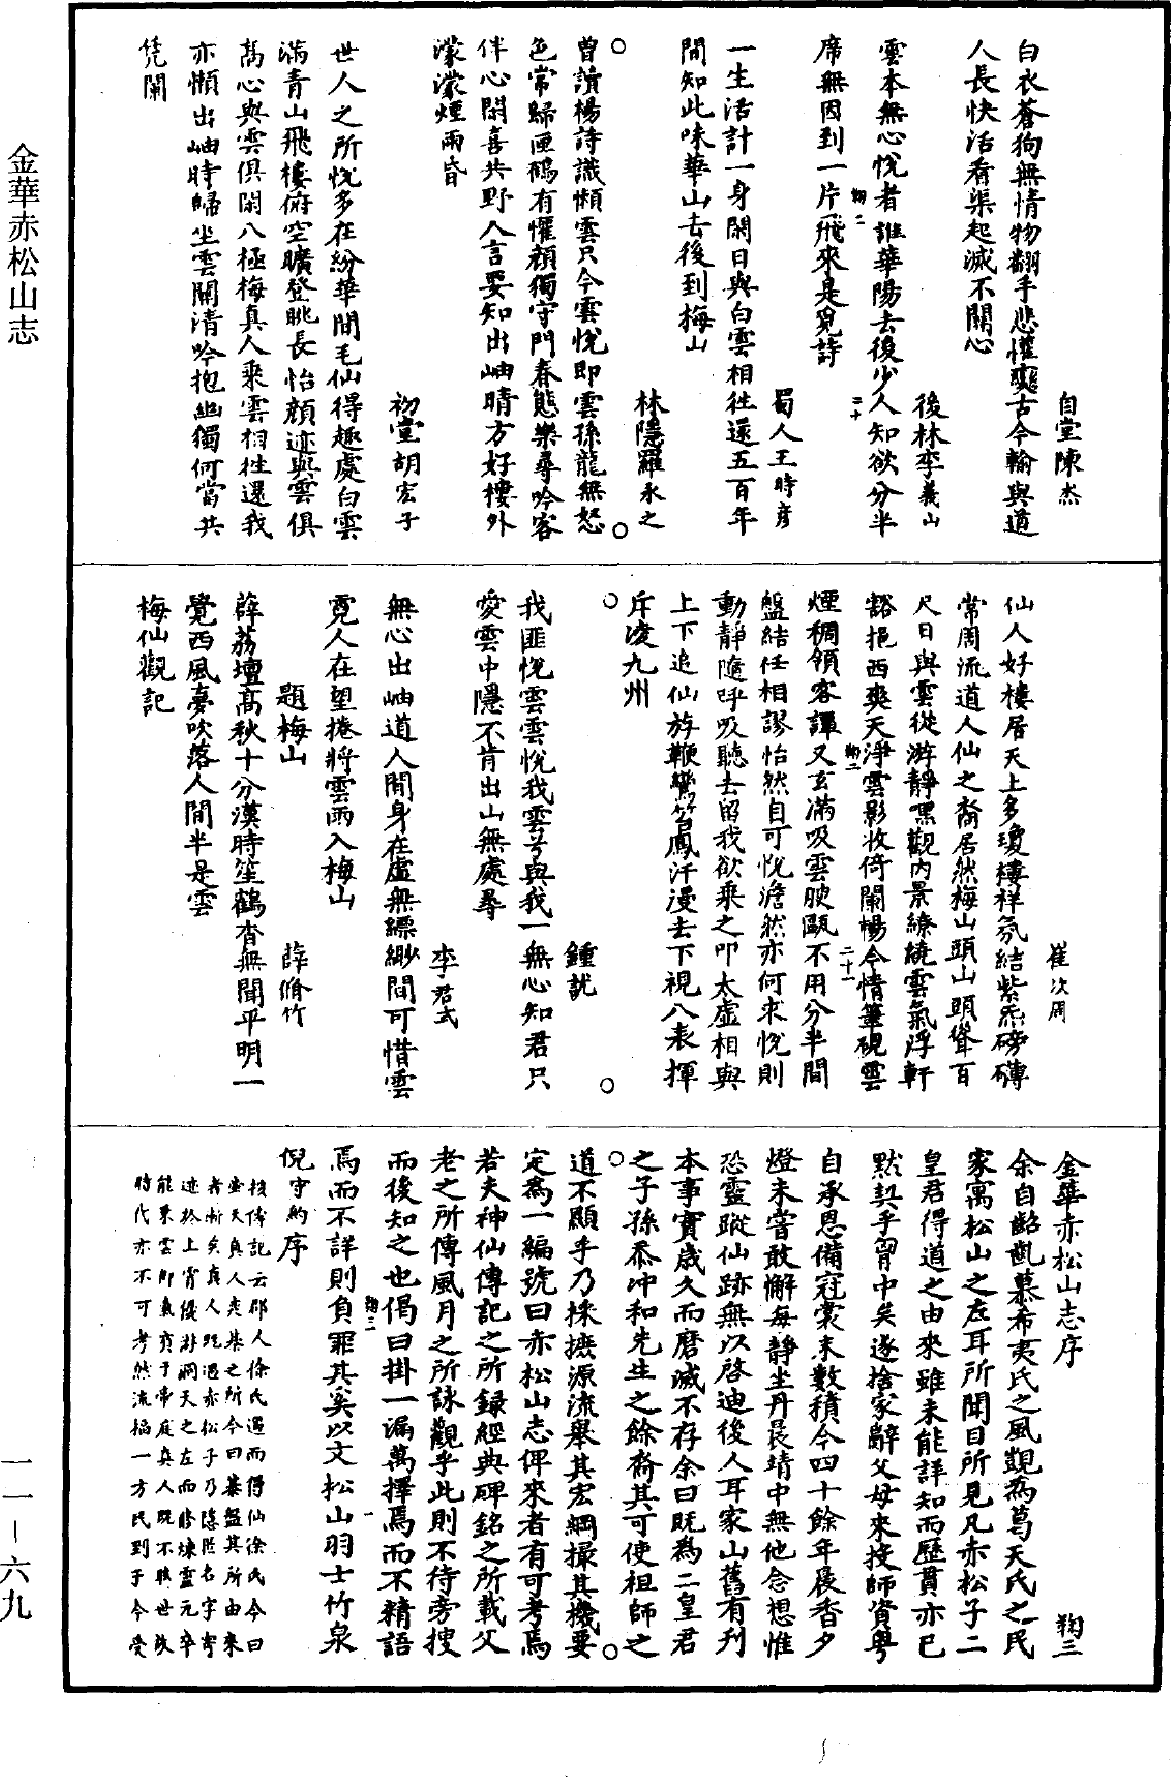 自堂陳杰
白衣蒼狗無情物翻手悲懽變古今輸與道
人長快活看渠起滅不關心
後林李義山
雲本無心悅者誰華陽去後少人知欲分半
席無因到一片飛來是覓詩
蜀人王時彥
一生活計一身閑日與白雲相往還五百年
間知此味華山去後到梅山
林隱羅永之
曾讀楊詩識懶雲只今雲悅即雲孫龍無怒
色常歸匣鶴有懽顏獨守門春態樂尋吟客
伴心閑喜共野人言要知出岫晴方好樓外
濛濛煙雨昏
初堂胡宏子
世人之所悅多在紛華間毛仙得趣處白雲
滿青山飛樓俯空曠登眺長怡顏迹與雲俱
高心與雲俱閑八極梅真人乘雲相往還我
亦懶出岫時歸坐雲關清吟抱幽獨何當共
凭闌
崔次周
仙人好樓居天上多瓊樓祥氛結紫炁磅礴
常周流道人仙之裔居然梅山頭山頭聳百
尺日與雲從游靜嘿觀內景繚繞雲氣浮軒
豁挹西爽天淨雲影收倚闌楊今情筆硯雲
煙稠領客譚又玄滿吸雲腴甌不用分半間
盤結任相謬怡然自可悅澹然亦何求悅則
動靜隨呼吸聽去留我欲乘之叩太虛相與
上下追仙斿鞭鸞笞鳳汗漫去下視八表揮
斥凌九州
鍾訧
我匪悅雲雲悅我雲兮與我一無心知君只
愛雲中隱不肯出山無處尋
李君式
無心出岫道人閒身在虛無縹緲間可惜雲
霓人在望捲將雲雨入梅山
題梅山
薛脩竹
薜荔壇高秋十分漢時笙鶴杳無聞平明一
覺西風夢吹落人間半是雲
梅仙觀記
金華赤松山志序
鞠三
余自齠齓慕希夷氏之風覬為葛天氏之民
家寓松山之左耳所聞目所見凡赤松子二
皇君得道之由來雖未能詳知而歷貫亦已
黙契乎胷中矣遂捨家辭父母來投師資粤
自承恩備冠裳末數積今四十餘年晨香夕
燈未嘗敢懈每靜坐丹晨靖中無他念想惟
恐靈蹤仙跡無以啓迪後人耳家山舊有刋
本事實歲久而磨滅不存余曰既為二皇君
之子孫忝冲和先生之餘裔其可使祖師之
道不顯乎乃採摭源流舉其宏綱撮其機要
定為一編號曰赤松山志俾來者有可考焉
若夫神仙傳記之所録經典碑銘之所載父
老之所傳風月之所詠觀乎此則不待旁搜
而後知之也偈曰掛一漏萬擇焉而不精語
焉而不詳則負罪其奚以文松山羽士竹泉
倪守約序
按傳記云郡人徐氏遇而得仙徐氏今曰
壺天真人㐮棊之所今曰棊盤其所由來
者漸矣真人既遇赤松子乃隱匿名字寄
迹於上霄復卦洞天之左而修煉靈元卒
能乗雲御氣賓于帝庭真人既不耿世故
時代亦不可考然流福一方民到于今受
金華赤松山志
一一—六九